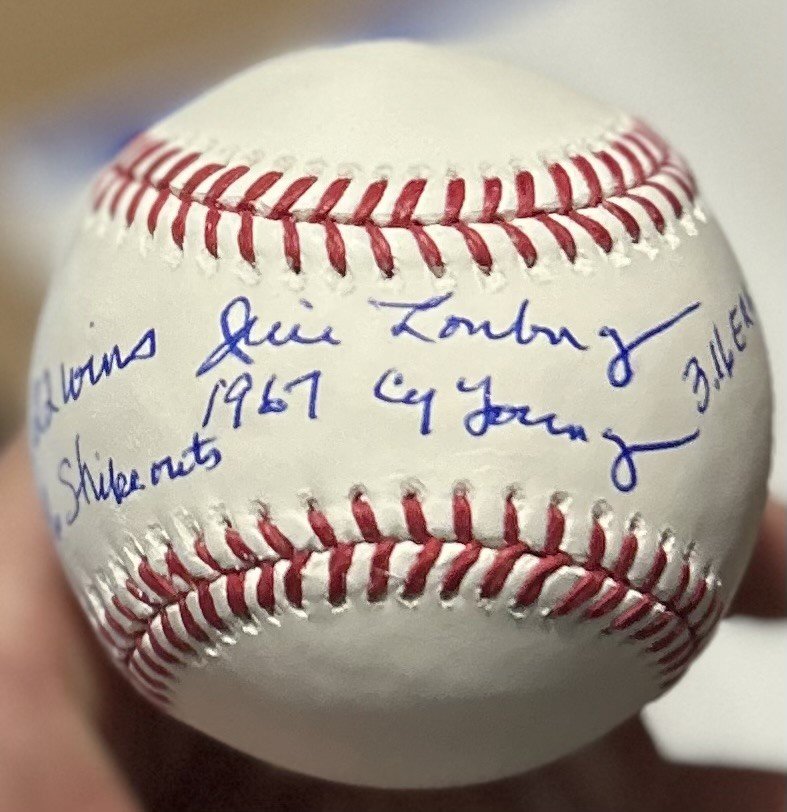 Jim Lonborg
1967 Cy Young
22 wins
Strikeouts
3.16 ERA